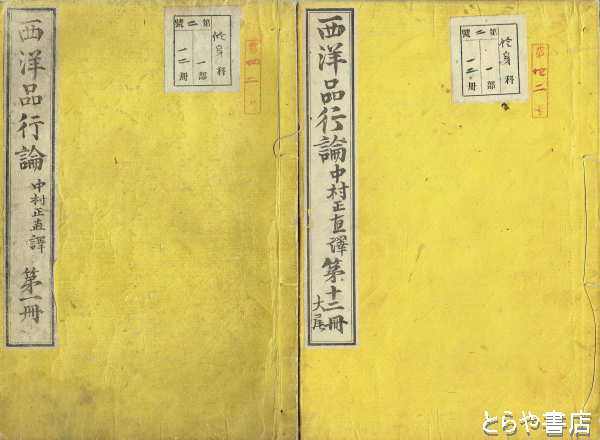 西洋品行論
中村正直譯
第一冊
修身科
第二號
一部
一二冊
第四二号
西洋品行論
中村正直譯
第十二冊
大尾
修身科
第二號
一部
一二冊
第四二号
とらや書店